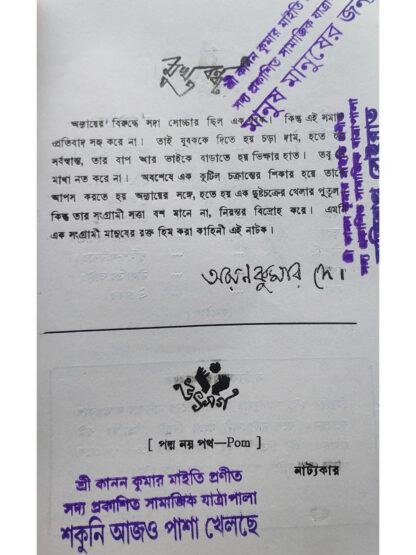 মুখবন্ধ
অন্যায়ের বিরুদ্ধে সদা সোচ্চার ছিল এক যুবক। কিন্তু এই সমাজ
প্রতিবাদ সহ্য করে না। তাই যুবককে দিতে হয় চড়া দাম, হতে হয়
সর্বস্বান্ত, তার বাপ আর ভাইকে বাড়াতে হয় ভিক্ষার হাত। তবু
মাথা নত করে না। অবশেষে এক কুটিল চক্রান্তের শিকার হয়ে তাকে
আপস করতে হয় অন্যায়ের সঙ্গে, হতে হয় এক দুষ্টচক্রের খেলার পুতুল
কিন্তু তার সংগ্রামী সত্তা বশ মানে না, নিরন্তর বিদ্রোহ করে। এমনি
এক সংগ্রামী মানুষের রক্ত হিম করা কাহিনী এই নাটক।
কুমার দে।
শ্রী কানন কুমার মাইতি প্রণীত
সদ্য প্রকাশিত সামাজিক যাত্রা
মানুষ মানুষের জন্য
শ্রী কানন কুমার মাইতি প্রণীত
সদ্য প্রকাশিত সামাজিক যাত্রাপালা
উৎসর্গ
[ পদ্ম নয় পথ—Pom ]
নাট্যকার
শ্রী কানন কুমার মাইতি প্রণীত
সদ্য প্রকাশিত সামাজিক যাত্রাপালা
শকুনি আজও পাশা খেলছে